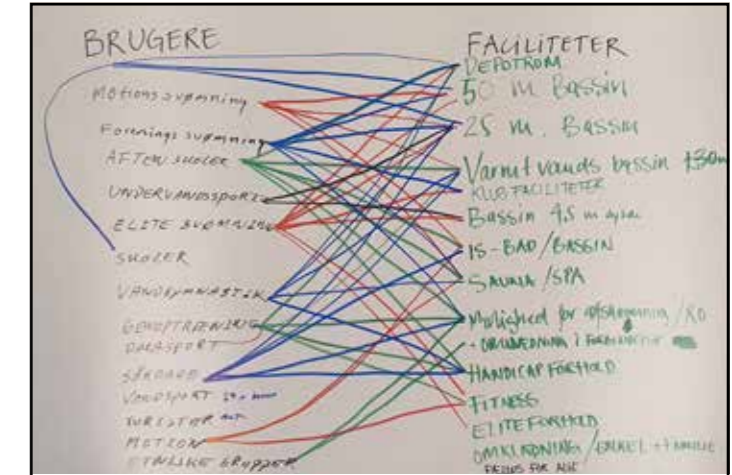 BRUGERE
Motionssvømning
Forenings svømning
AFTENSKOLER
UNDERVANDSSPORT
ELITE SVØMNING
SKOLER
VANDGYMNASTIK
GENOPTRÆNING
PARASPORT
VANDSPORT
TURISTER
MOTION
ETNISKE GRUPPER
FACILITETER
DEPOTRUM
50 m Bassin
25 m. Bassin
Varmt vands bassin
KLUB FACILITETER
Bassin 4,5 m
IS-BAD/BASSIN
SAUNA/SPA
Mulighed for /RO
HANDICAP FORHOLD
FITNESS
ELITEFORHOLD
OMKLÆDNING/ENKEL + FAMILIE
FÆLLES FOR ALLE